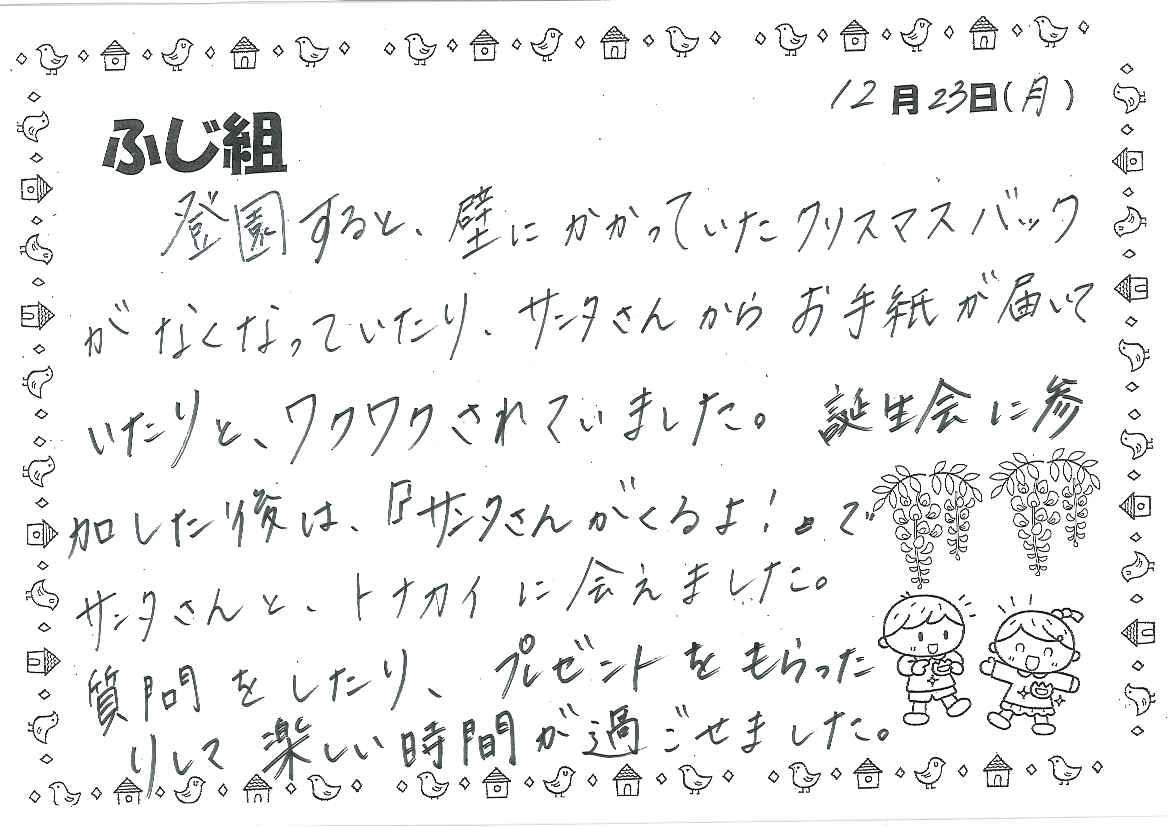 12月23日(月)
ふじ組
登園すると、壁にかかっていたクリスマスバック
がなくなっていたり、サンタさんからお手紙が届いて
いたりと、ワクワクされていました。誕生会に参
加した後は、『サンタさんがくるよ!』で
サンタさんと、トナカイに会えました。
質問をしたり、プレゼントをもらった
りして楽しい時間が過ごせました。